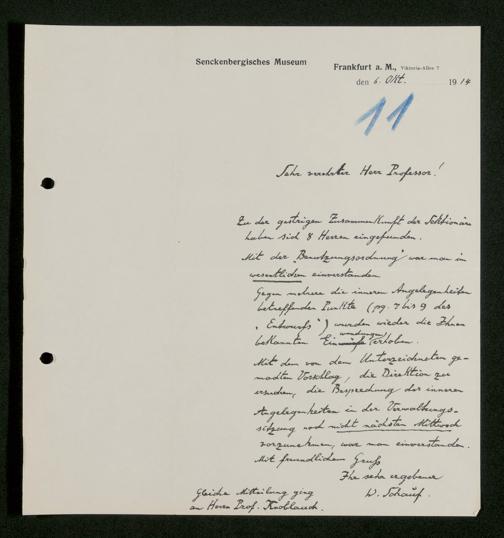 Senckenbergisches Museum
Frankfurt a. M., Viktoria-Allee 7
den 6. Okt. 1914
11
Sehr verehrter Herr Professor!
Zu der gestrigen Zusammenkunft der Sektionäre
haben sich 8 Herren eingefunden.
Mit der „Benutzungsordnung“ war man im
wesentlichen einverstanden
Gegen mehrere die inneren Angelegenheiten
betreffenden Punkte (pg. 7 bis 9 des
„Entwurfs“) wurden wieder die Ihnen
bekannten Einwendungen erhoben.
Mit dem von dem Unterzeichneten ge-
machten Vorschlag, die Direktion zu
ersuchen, die Besprechung der inneren
Angelegenheiten in der Verwaltungs-
sitzung noch nicht nächsten Mittwoch
vorzunehmen, war man einverstanden.
Mit freundlichem Gruß
Ihr sehr ergebener
W. Schauf.
Gleiche Mitteilung ging
an Herrn Prof. Knoblauch.